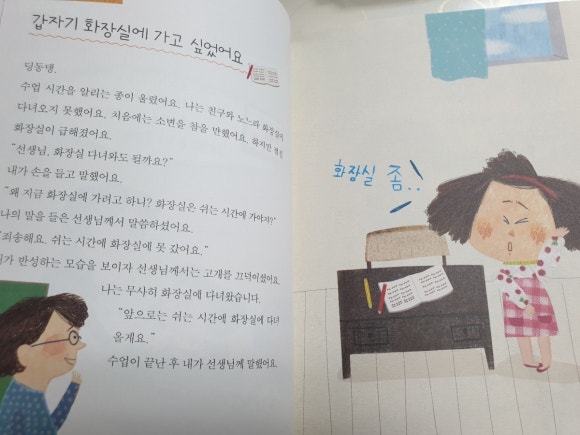 갑자기 화장실에 가고 싶었어요
딩동댕.
수업 시간을 알리는 종이 울렸어요. 나는 친구와 노느라 화장실에
다녀오지 못했어요. 처음에는 소변을 참을 만했어요. 하지만 점점
화장실이 급해졌어요.
"선생님, 화장실 다녀와도 될까요?"
내가 손을 들고 말했어요.
"왜 지금 화장실에 가려고 하니? 화장실은 쉬는 시간에 가야지?"
나의 말을 들은 선생님께서 말씀하셨어요.
"죄송해요. 쉬는 시간에 화장실에 못 갔어요."
내가 반성하는 모습을 보이자 선생님께서는 고개를 끄덕이셨어요.
나는 무사히 화장실에 다녀왔습니다.
"앞으로는 쉬는 시간에 화장실에 다녀
올게요."
수업이 끝난 후 내가 선생님께 말했어요.
화장실 좀..